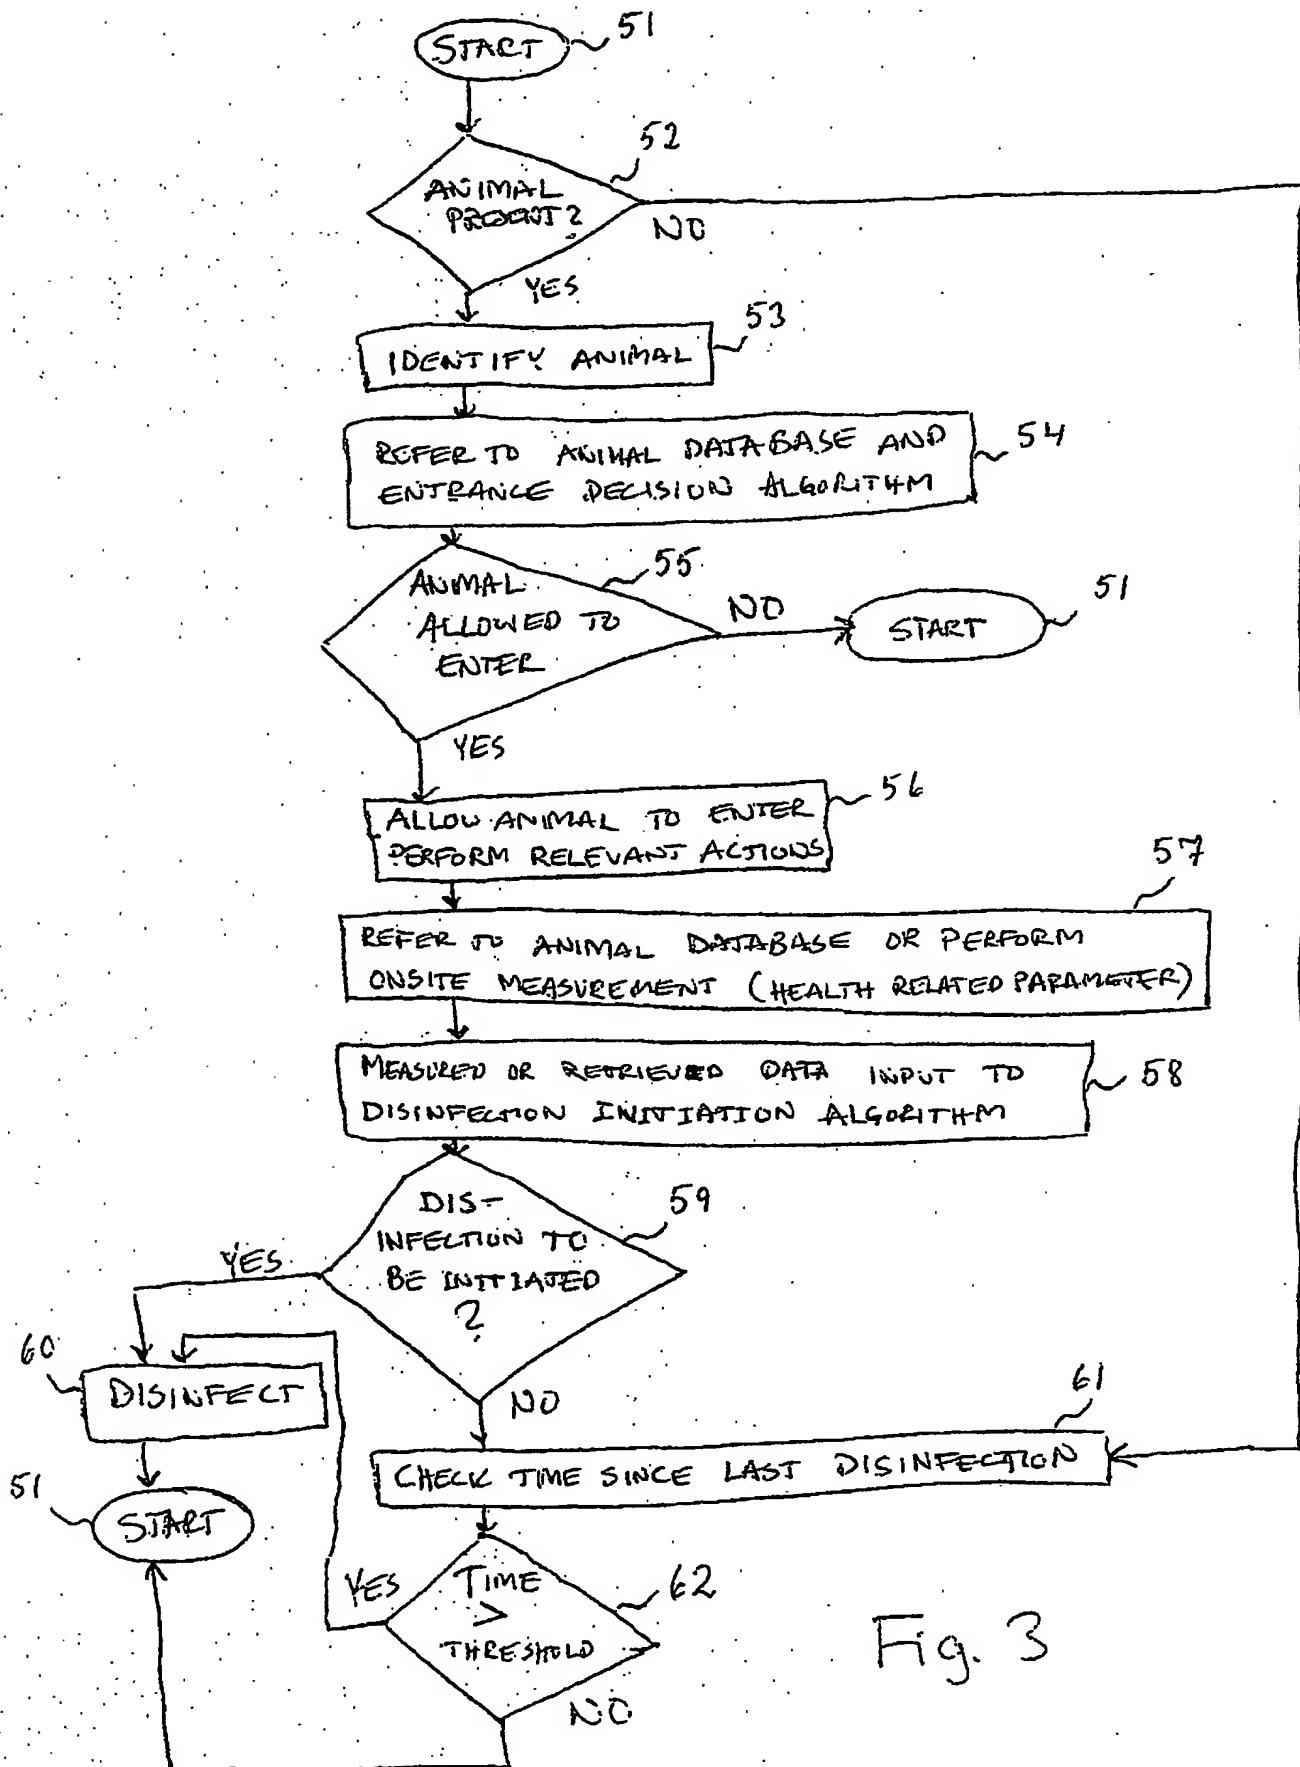 START
51
52
ANIMAL
PRESENT?
NO
YES
53
IDENTIFY ANIMAL
REFER TO ANIMAL DATABASE AND
ENTRANCE DECISION ALGORITHM
54
ANIMAL
ALLOWED TO
ENTER
55
NO
START
51
YES
ALLOW ANIMAL TO ENTER
PERFORM RELEVANT ACTIONS
56
57
REFER TO ANIMAL DATABASE OR PERFORM
ONSITE MEASUREMENT (HEALTH RELATED PARAMETER)
MEASURED OR RETRIEVED DATA INPUT TO
DISINFECTION INITIATION ALGORITHM
58
DIS-
INFECTION TO
BE INITIATED
?
59
YES
60
DISINFECT
NO
61
CHECK TIME SINCE LAST DISINFECTION
51
START
YES
TIME
>
THRESHOLD
62
NO
Fig. 3